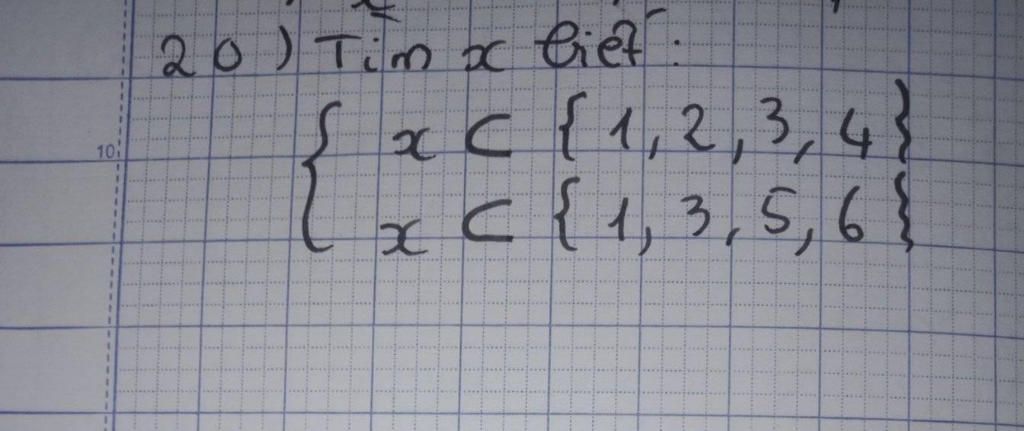 20) Tìm x biết:
{ x ⊂ {1, 2, 3, 4}
x ⊂ {1, 3, 5, 6}
10